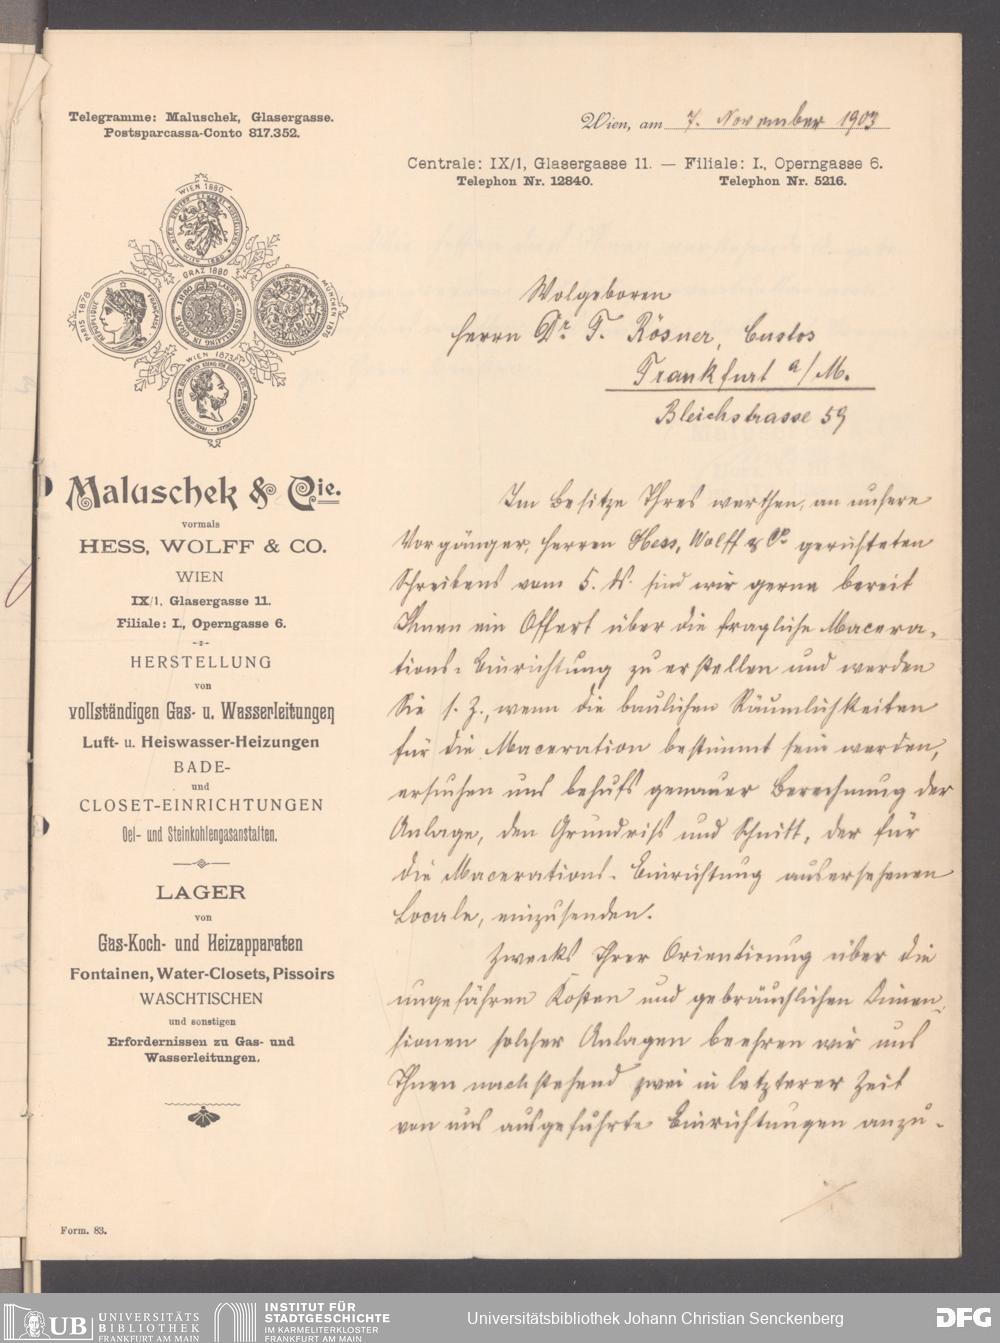 Telegramme: Maluschek, Glasergasse.
Postsparcassa-Conto 817.352.
Wien, am 7. November 1903
Centrale: IX/1, Glasergasse 11. — Filiale: I., Operngasse 6.
Telephon Nr. 12840. Telephon Nr. 5216.
WIEN 1880
GRAZ 1880
PARIS 1878
MÜNCHEN 1876
WIEN 1873
Maluschek & Cie.
vormals
HESS, WOLFF & CO.
WIEN
IX/1, Glasergasse 11.
Filiale: I., Operngasse 6.
HERSTELLUNG
von
vollständigen Gas- u. Wasserleitungen
Luft- u. Heiswasser-Heizungen
BADE-
und
CLOSET-EINRICHTUNGEN
Oel- und Steinkohlengasanstalten.
LAGER
von
Gas-Koch- und Heizapparaten
Fontainen, Water-Closets, Pissoirs
WASCHTISCHEN
und sonstigen
Erfordernissen zu Gas- und
Wasserleitungen.
Form. 83.
Wolgeboren
Herrn Dr. F. Rösner, Custos
Frankfurt a/M.
Bleichstrasse 59
Im Besitze Ihres werthen, an unsere
Vorgänger, Herren Hess, Wolff & Co. gerichteten
Schreibens vom 5. ds. sind wir gerne bereit
Ihnen ein Offert über die fragliche Macera-
tions-Einrichtung zu erstellen und werden
Sie s. Z., wenn die baulichen Räumlichkeiten
für die Maceration bestimmt sein werden,
ersuchen uns behufs genauer Berechnung der
Anlage, den Grundriss und Schnitt, der für
die Macerations-Einrichtung ausersehenen
Locale, einzusenden.
Zwecks Ihrer Orientierung über die
ungefähren Kosten und gebräuchlichen Dimen-
sionen solcher Anlagen beehren wir uns
Ihnen nachstehend zwei in letzterer Zeit
von uns ausgeführte Einrichtungen anzu-
UB UNIVERSITÄTS
BIBLIOTHEK
FRANKFURT AM MAIN
INSTITUT FÜR
STADTGESCHICHTE
IM KARMELITERKLOSTER
FRANKFURT AM MAIN
Universitätsbibliothek Johann Christian Senckenberg
DFG